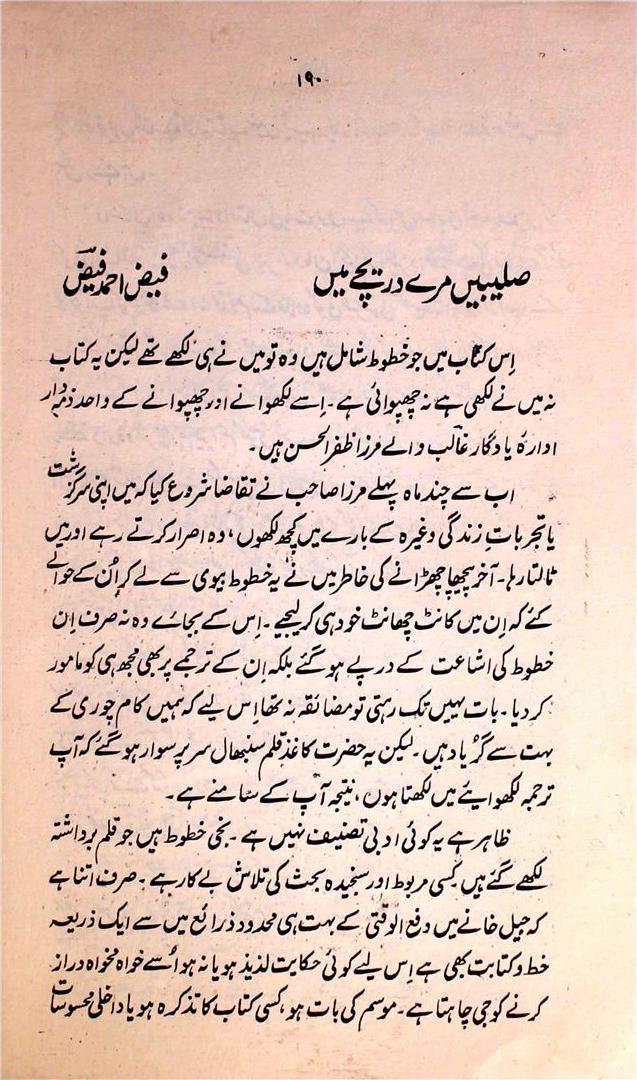 ۱۹۰
صلیبیں مرے دریچے میں فیض احمد فیضؔ
اِس کتاب میں جو خطوط شامل ہیں وہ تو میں نے ہی لکھے تھے لیکن یہ کتاب
نہ میں نے لکھی ہے نہ چھپوائی ہے۔ اِسے لکھوانے اور چھپوانے کے واحد ذمہ دار
ادارۂ یادگار غالب والے مرزا ظفر الحسن ہیں۔
اب سے چند ماہ پہلے مرزا صاحب نے تقاضا شروع کیا کہ میں اپنی سرگزشت
یا تجرباتِ زندگی وغیرہ کے بارے میں کچھ لکھوں، وہ اصرار کرتے رہے اور میں
ٹالتا رہا۔ آخر پیچھا چھڑانے کی خاطر میں نے یہ خطوط بیوی سے لے کر اُن کے حوالے
کئے کہ اِن میں کانٹ چھانٹ خود ہی کر لیجیے۔ اِس کے بجائے وہ نہ صرف اِن
خطوط کی اشاعت کے درپے ہو گئے بلکہ اِن کے ترجمے پر بھی مجھ ہی کو مامور
کر دیا۔ بات یہیں تک رہتی تو مضائقہ نہ تھا اِس لیے کہ ہمیں کام چوری کے
بہت سے گُر یاد ہیں۔ لیکن یہ حضرت کاغذ قلم سنبھال سر پر سوار ہو گئے کہ آپ
ترجمہ لکھوایئے میں لکھتا ہوں، نتیجہ آپ کے سامنے ہے۔
ظاہر ہے یہ کوئی ادبی تصنیف نہیں ہے۔ نجی خطوط ہیں جو قلم برداشتہ
لکھے گئے ہیں کسی مربوط اور سنجیدہ بحث کی تلاش بے کار ہے۔ صرف اتنا ہے
کہ جیل خانے میں دفع الوقتی کے بہت ہی محدود ذرائع میں سے ایک ذریعہ
خط و کتابت بھی ہے اِس لیے کوئی حکایت لذیذ ہو یا نہ ہو اُسے خواہ مخواہ دراز
کرنے کو جی چاہتا ہے۔ موسم کی بات ہو، کسی کتاب کا تذکرہ ہو یا داخلی محسوسات